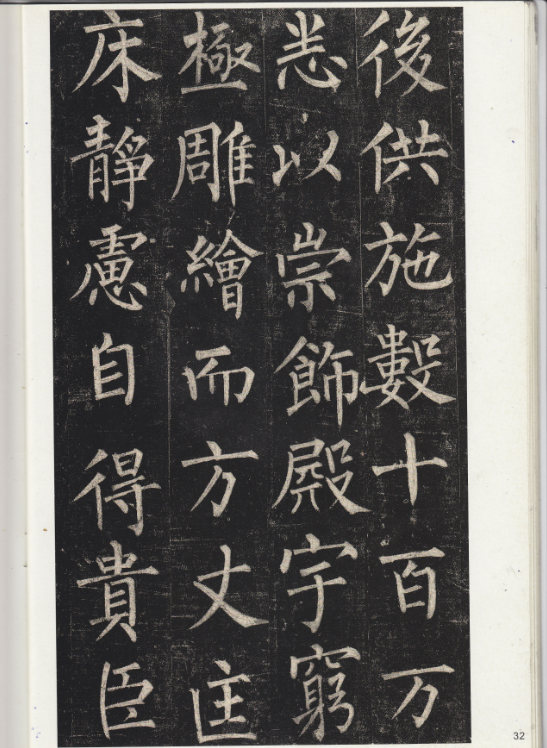 後供施數十百万
悉以崇飾殿宇窮
極雕繪而方丈匡
床靜慮自得貴臣
32